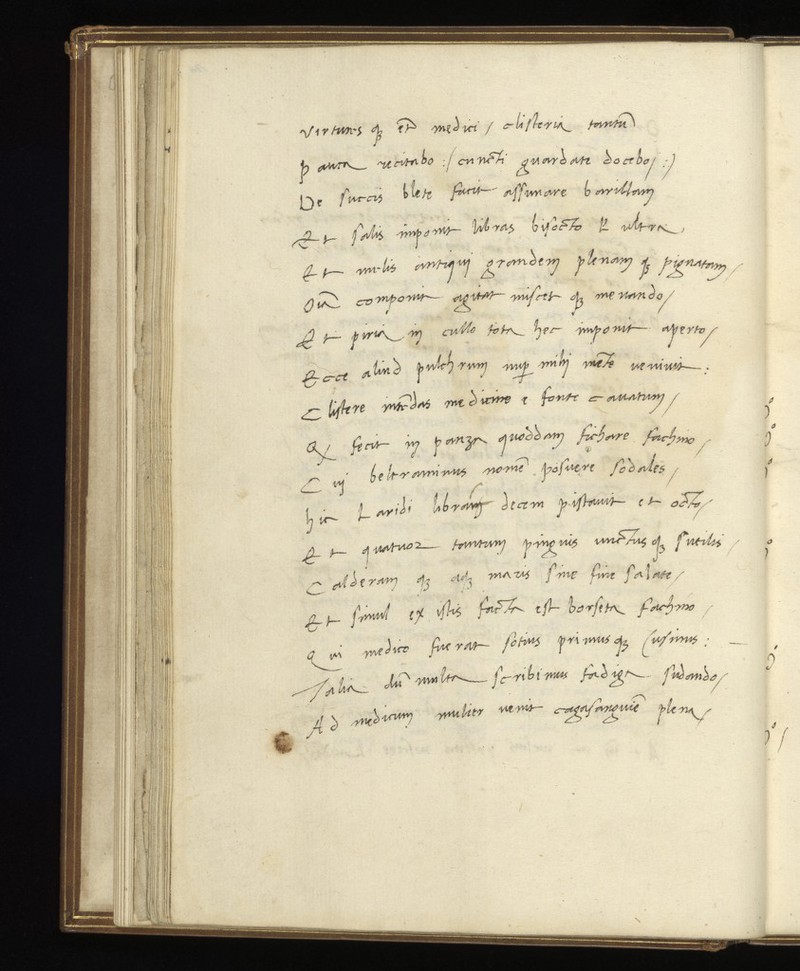 Virtutes q; et̃ medici / clisteria tantũ
pauca recitabo :/ cuncti guardate docebo / :)
De succis blete facit assunare barillam
Et salis imponit libras bisocto & ultra,
Et melis antiqui grandem plenam q; pignatam /
Oĩa componit agitat miscet q; menando /
Et piria in cullo tota hec imponit aperto /
Ecce aliud pulchrum nup mihi mẽte venivit :
Clistere intẽdas medicine e fonte cavatum /
Q fecit in panza quoddam fichare fachino /
Cui beltraminus nomẽ posuere sodales /
hic Laridi libram decem pistavit et octo /
Et quatuor tantum pinguis unctus q; sutilis /
Calderam q; aq; maris sine fine salate /
Et simul ex istis facta est borseta fachino /
Qui medico fuerat sotius primus q; cusinus :
Talia dũ multa scribimus fadiga sudando /
Ad medicum mulier venit cagasanguiẽ plena /